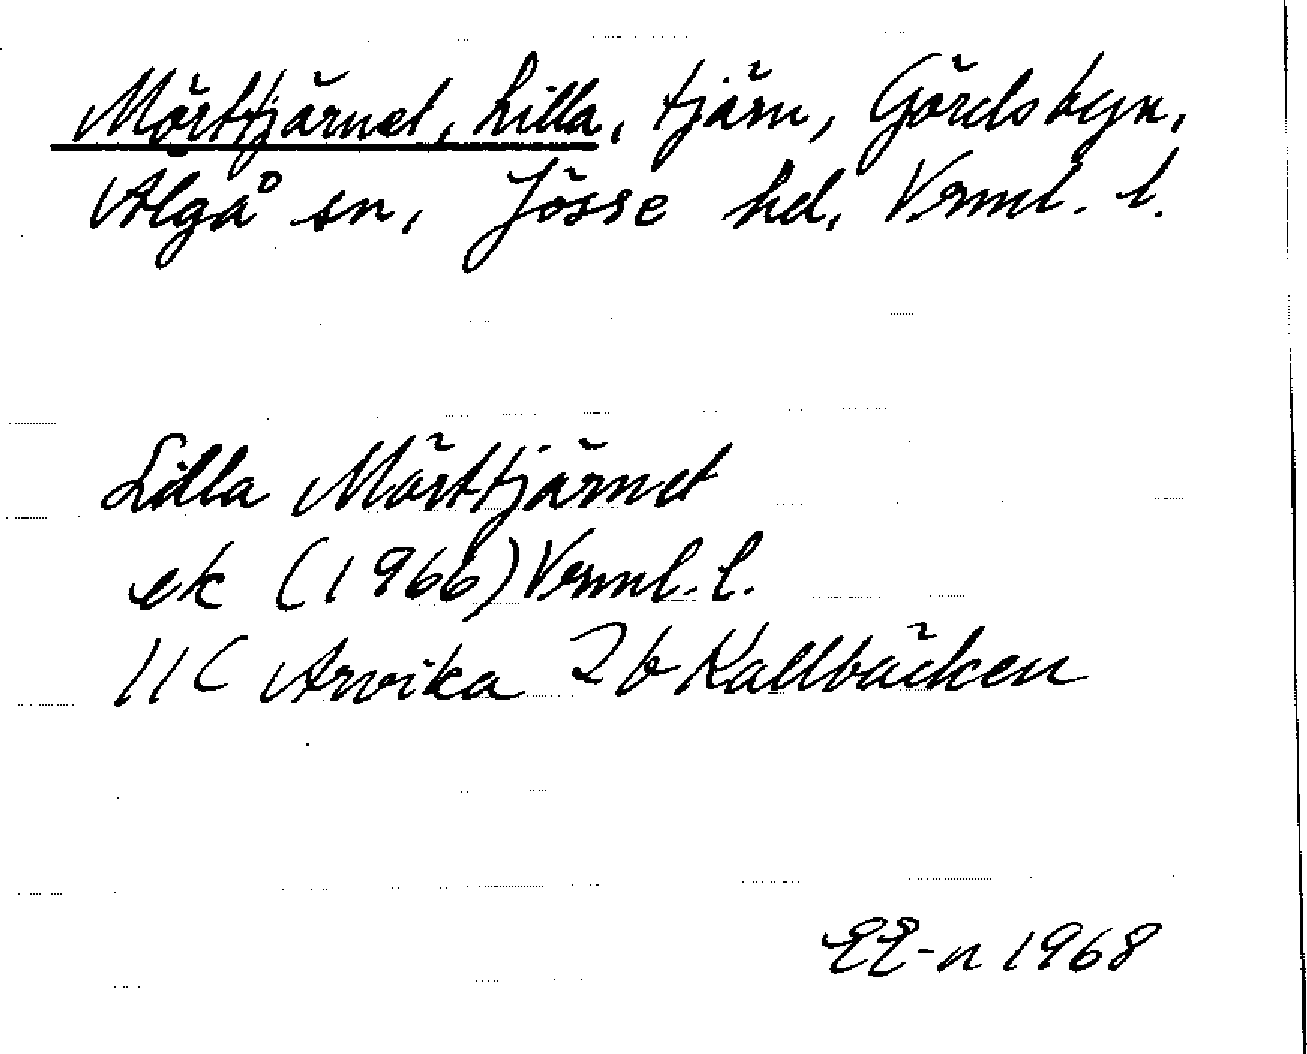 Mörttjärnet, Lilla, tjärn, Gördsbyn,
Älgå sn, Jösse hd, Vrml. l.
Lilla Mörttjärnet
ek (1966) Vrml. l.
11C Arvika 2b Kallbäcken
EE-n 1968